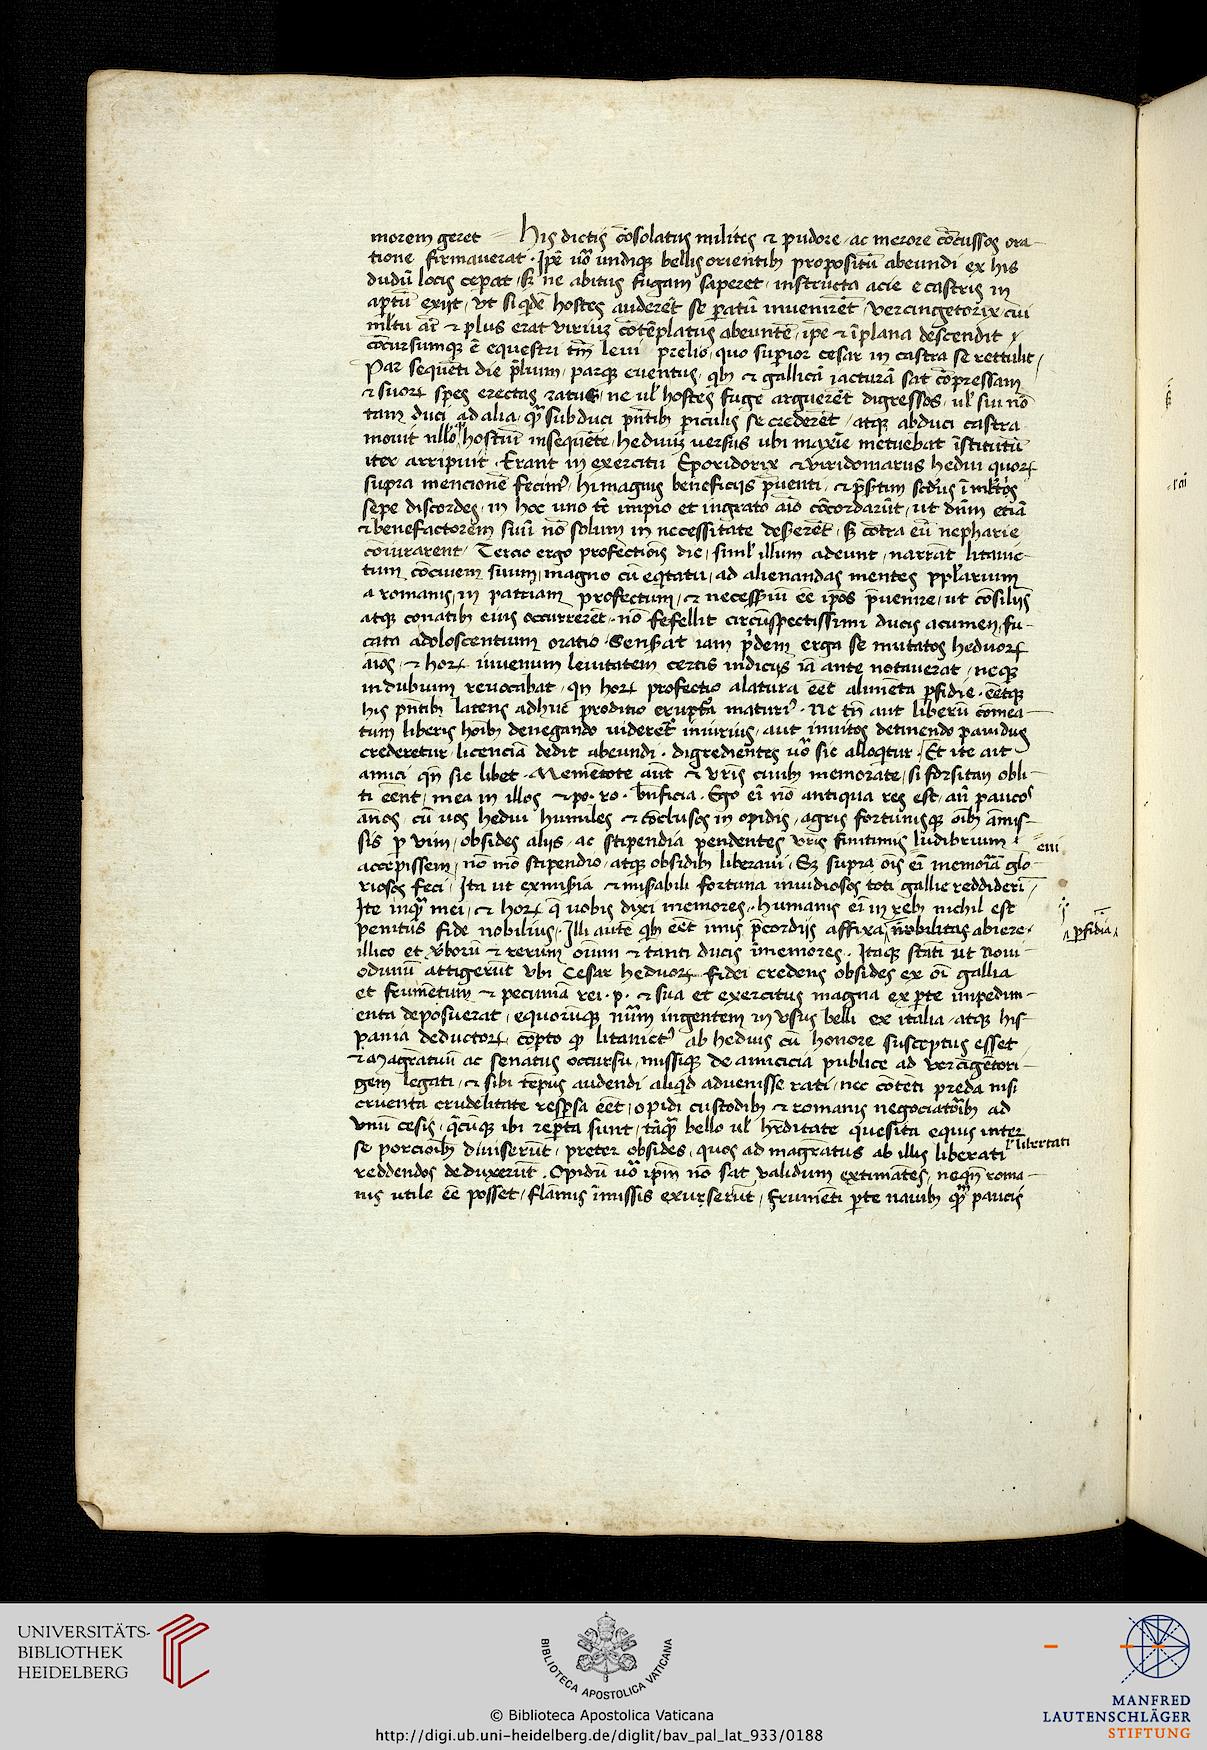 morem geret His dictis cōsolatus milites ⁊ pudore ac merore cōcussos ora-
tione firmauerat. Ip̄e ūo undiqꝫ bellis orientibꝫ propositū abeundi ex his
dudū locis ceperat, sꝫ ne abitus fugam saperet, instructa acie e castris in
ap̄tū exijt, vt si qidē hostes auderēt se paratū inuenirēt. vercingetorix, cui
m̄ltū aī ⁊ plus erat viriuꝫ cōtēplatus abeuntē, ip̄e ⁊ ī plana descendit
cōcursumqꝫ ē equestri tm̄ leui prelio, quo supior cesar in castra se rettulit,
Par sequēti die p̄lium, parqꝫ euentus, qibꝫ ⁊ gallicā iacturā sat cōpressam
⁊ suorꝝ spes erectas ratus, ne ul̓ hostes fuge arguerēt digressos, ul̓ sui nō
tam duci ad alia, qꝫ subduci p̄ntibꝫ piculis se crederēt, atqꝫ abduci castra
mouit nullo hostiū insequēte, heduuꝫ versus ubi maxīe metuebat īstitutū
iter arripuit. Erant in exercitu Eporidorix ⁊ viridomarus hedui quorꝝ
supra mencionē fecim᾽, hi magnis beneficijs p̄uenti, ⁊
sepe discordes, in hoc uno tc̄ impio et ingrato aīo cōcordarūt, ut dn̄m etiā
⁊ benefactorem suū nō solum in necessitate desererēt, sꝫ cōtra eū nepharie
coniurarent, Tercio ergo profectiois die, siml̓ illum adeunt, narrāt litauic-
tum cōciuem suum, magno cū eqitatu, ad alienandas mentes pp̄larium
a romanis, in patriam profectum, ⁊ necessariū eē ipōs p̄uenire, ut cōsiliis
atqꝫ conatibꝫ eius occurrerēt, nō fefellit circūspectissimi ducis acumen, fu-
cata adoloscentium oratio. Senserat iam p̓dem erga se mutatos heduorꝝ
aīos, ⁊ horꝝ iuuenum leuitatem certis indicijs iā ante notauerat, neqꝫ
in dubium reuocabat, qn̄ horꝝ profectio alatura eēt alimēta pfidie, eētqꝫ
his p̄ntibꝫ latens adhuc proditio erupta maturi᾽. Ne tn̄ aut liberū comea-
tum liberis hoībꝫ denegando uiderēt᾽ iniurius, aut inuitos detinendo pauidus
crederetur, licenciā dedit abeundi. digredientes ūo sic alloqtur. Et ite ait
amici qn̄ sic libet. Memētote aūt ⁊ vr̄is ciuibꝫ memorate, si forsitan obli-
ti eēnt, mea in illos, ⁊ po. ro. bn̄ficia. Ego eī nō antiqua res est, an̄ paucos
annos, cū uos hedui humiles ⁊ cōclusos in opidis, agris fortunisqꝫ oībꝫ amis-
sis p vim, obsides alijs, ac stipendia pendentes vr̄is finitimis ludibrium
accepissem, nō mō stipendio, atqꝫ obsidibꝫ liberaui, Sꝫ supra oīs eī memoriā glo-
riosos feci, Ita ut ex miseria ⁊ miserabili fortuna inuidiosos toti gallie reddiderī,
eui
Ite inqꝫ mei, ⁊ horꝝ q̄ uobis dixi memores, humanis eī in rebꝫ nichil est
penitus fide nobilius, Illi aute qibꝫ eēt imis p̄cordijs affixa nobilitas abiere
pfidia
illico et vborū ⁊ rerum oīum ⁊ tanti ducis īmemores. Itaqꝫ stati ut Noui
odunū attigerūt vbi Cesar heduorꝝ fidei credens obsides ex oī gallia
et frumētum ⁊ pecuniā rei. p. ⁊ sua et exercitus magna ex pte impedim-
enta deposuerat, equorūqꝫ nūm ingentem in vsus belli ex italia atqꝫ his-
pania deductorꝝ, cōpto qp litauict᾽ ab heduis cū honore susceptus esset
⁊ Magr̄atuū ac senatus occursu, missiqꝫ de amicicia publice ad vercīgētori-
gem legati, ⁊ sibi tēpus audendi aliqid aduenisse rati, nec cōtēti preda nisi
cruenta crudelitate respersa eēt, opidi custodibꝫ ⁊ romanis negociatoribꝫ ad
vnū cesis, q̄cūqꝫ ibi reperta sunt, tāqꝫ bello ul̓ hr̄ditate quesita equis inter
se porcioībꝫ diuiserūt, preter obsides, quos ad magr̄atus ab illis liberati
l̓ libertati
reddendos deduxerūt. Opidū ūo ipm̄ nō sat validum extimātes, neqn̄ roma-
nis utile eē posset, flāmis īmissis exusserūt, frumēti pte nauibꝫ qꝫ paucis
UNIVERSITÄTS-
BIBLIOTHEK
HEIDELBERG
BIBLIOTECA APOSTOLICA VATICANA
© Biblioteca Apostolica Vaticana
http://digi.ub.uni-heidelberg.de/diglit/bav_pal_lat_933/0188
MANFRED
LAUTENSCHLÄGER
STIFTUNG